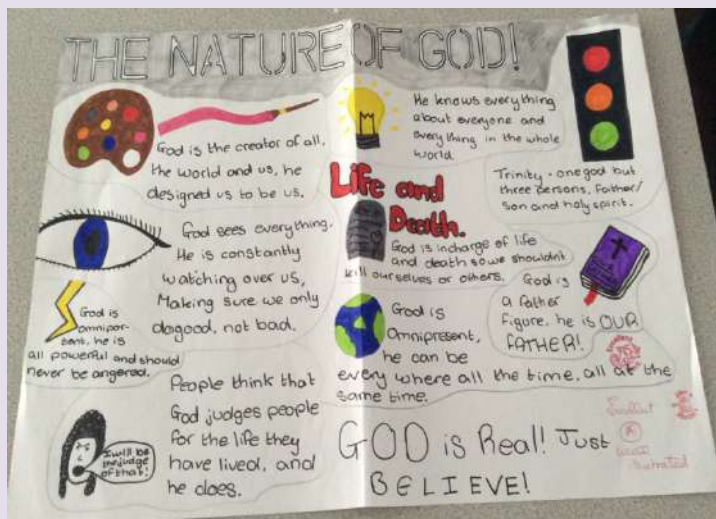 THE NATURE OF GOD!
God is the creator of all,
the world and us, he
designed us to be us.
He knows everything
about everyone and
everything in the whole
world
Trinity - one god but
three persons, Father/
Son and holy spirit.
God sees everything.
He is constantly
watching over us,
Making sure we only
do good, not bad.
Life and
Death.
God is incharge of life
and death so we shouldn't
kill ourselves or others.
God is
omnipor-
tent, he is
all powerful and should
never be angered.
God is
Omnipresent,
he can be
every where all the time, all at the
same time.
God is
a father
figure, he is OUR
FATHER!
I will be
the judge
of that!
People think that
God judges people
for the life they
have lived, and
he does.
GOD is Real! Just
BELIEVE!
Excellent
A